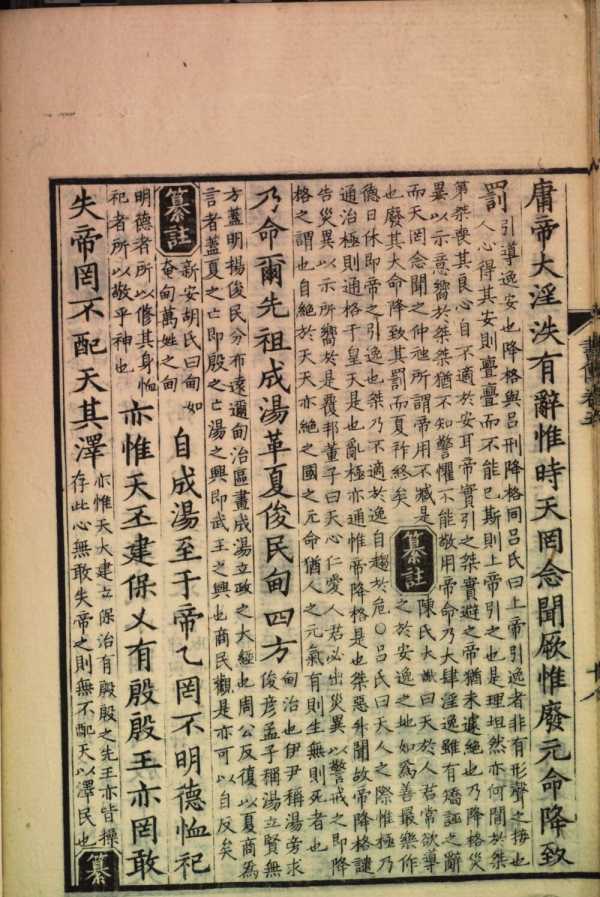 庸帝大淫泆有辭惟時天罔念聞厥惟廢元命降致
罰
引導逸安也降格與呂刑降格同呂氏曰上帝引逸者非有形聲之接也
人心得其安則亹亹而不能已斯則上帝引之也是理坦然亦何間於桀
第桀喪其良心自不適於安耳帝實引之桀實避之帝猶未遽絕也乃降格災
異以示意嚮於桀桀猶不知警懼不能敬用帝命乃大肆淫逸雖有矯誣之辭
而天罔念聞之仲虺所謂帝用不臧是
也廢其大命降致其罰而夏祚終矣
纂註
陳氏大猷曰天於人君常欲導
之於安逸之地如為善最樂作
德日休即帝之引逸也桀乃不適於逸自趨於危○呂氏曰天人之際惟極乃
通治極則通格于皇天是也亂極亦通惟帝降格是也桀惡升聞故帝降格譴
告災異以示所嚮於是覆邦董子曰天心仁愛人君必出災異以警戒之即降
格之謂也自絕於天天亦絕之國之元命猶人之元氣有則生無則死者也
乃命爾先祖成湯革夏俊民甸四方
甸治也伊尹稱湯旁求
俊彥孟子稱湯立賢無
方蓋明揚俊民分布遠邇甸治區畫成湯立政之大經也周公反復以夏商為
言者蓋夏之亡即殷之亡湯之興即武王之興也商民觀是亦可以自反矣
纂註
新安胡氏曰甸如
奄甸萬姓之甸
自成湯至于帝乙罔不明德恤祀
明德者所以修其身恤
祀者所以敬乎神也
亦惟天丕建保乂有殷殷王亦罔敢
失帝罔不配天其澤
亦惟天大建立保治有殷殷之先王亦皆操
存此心無敢失帝之則無不配天以澤民也
纂